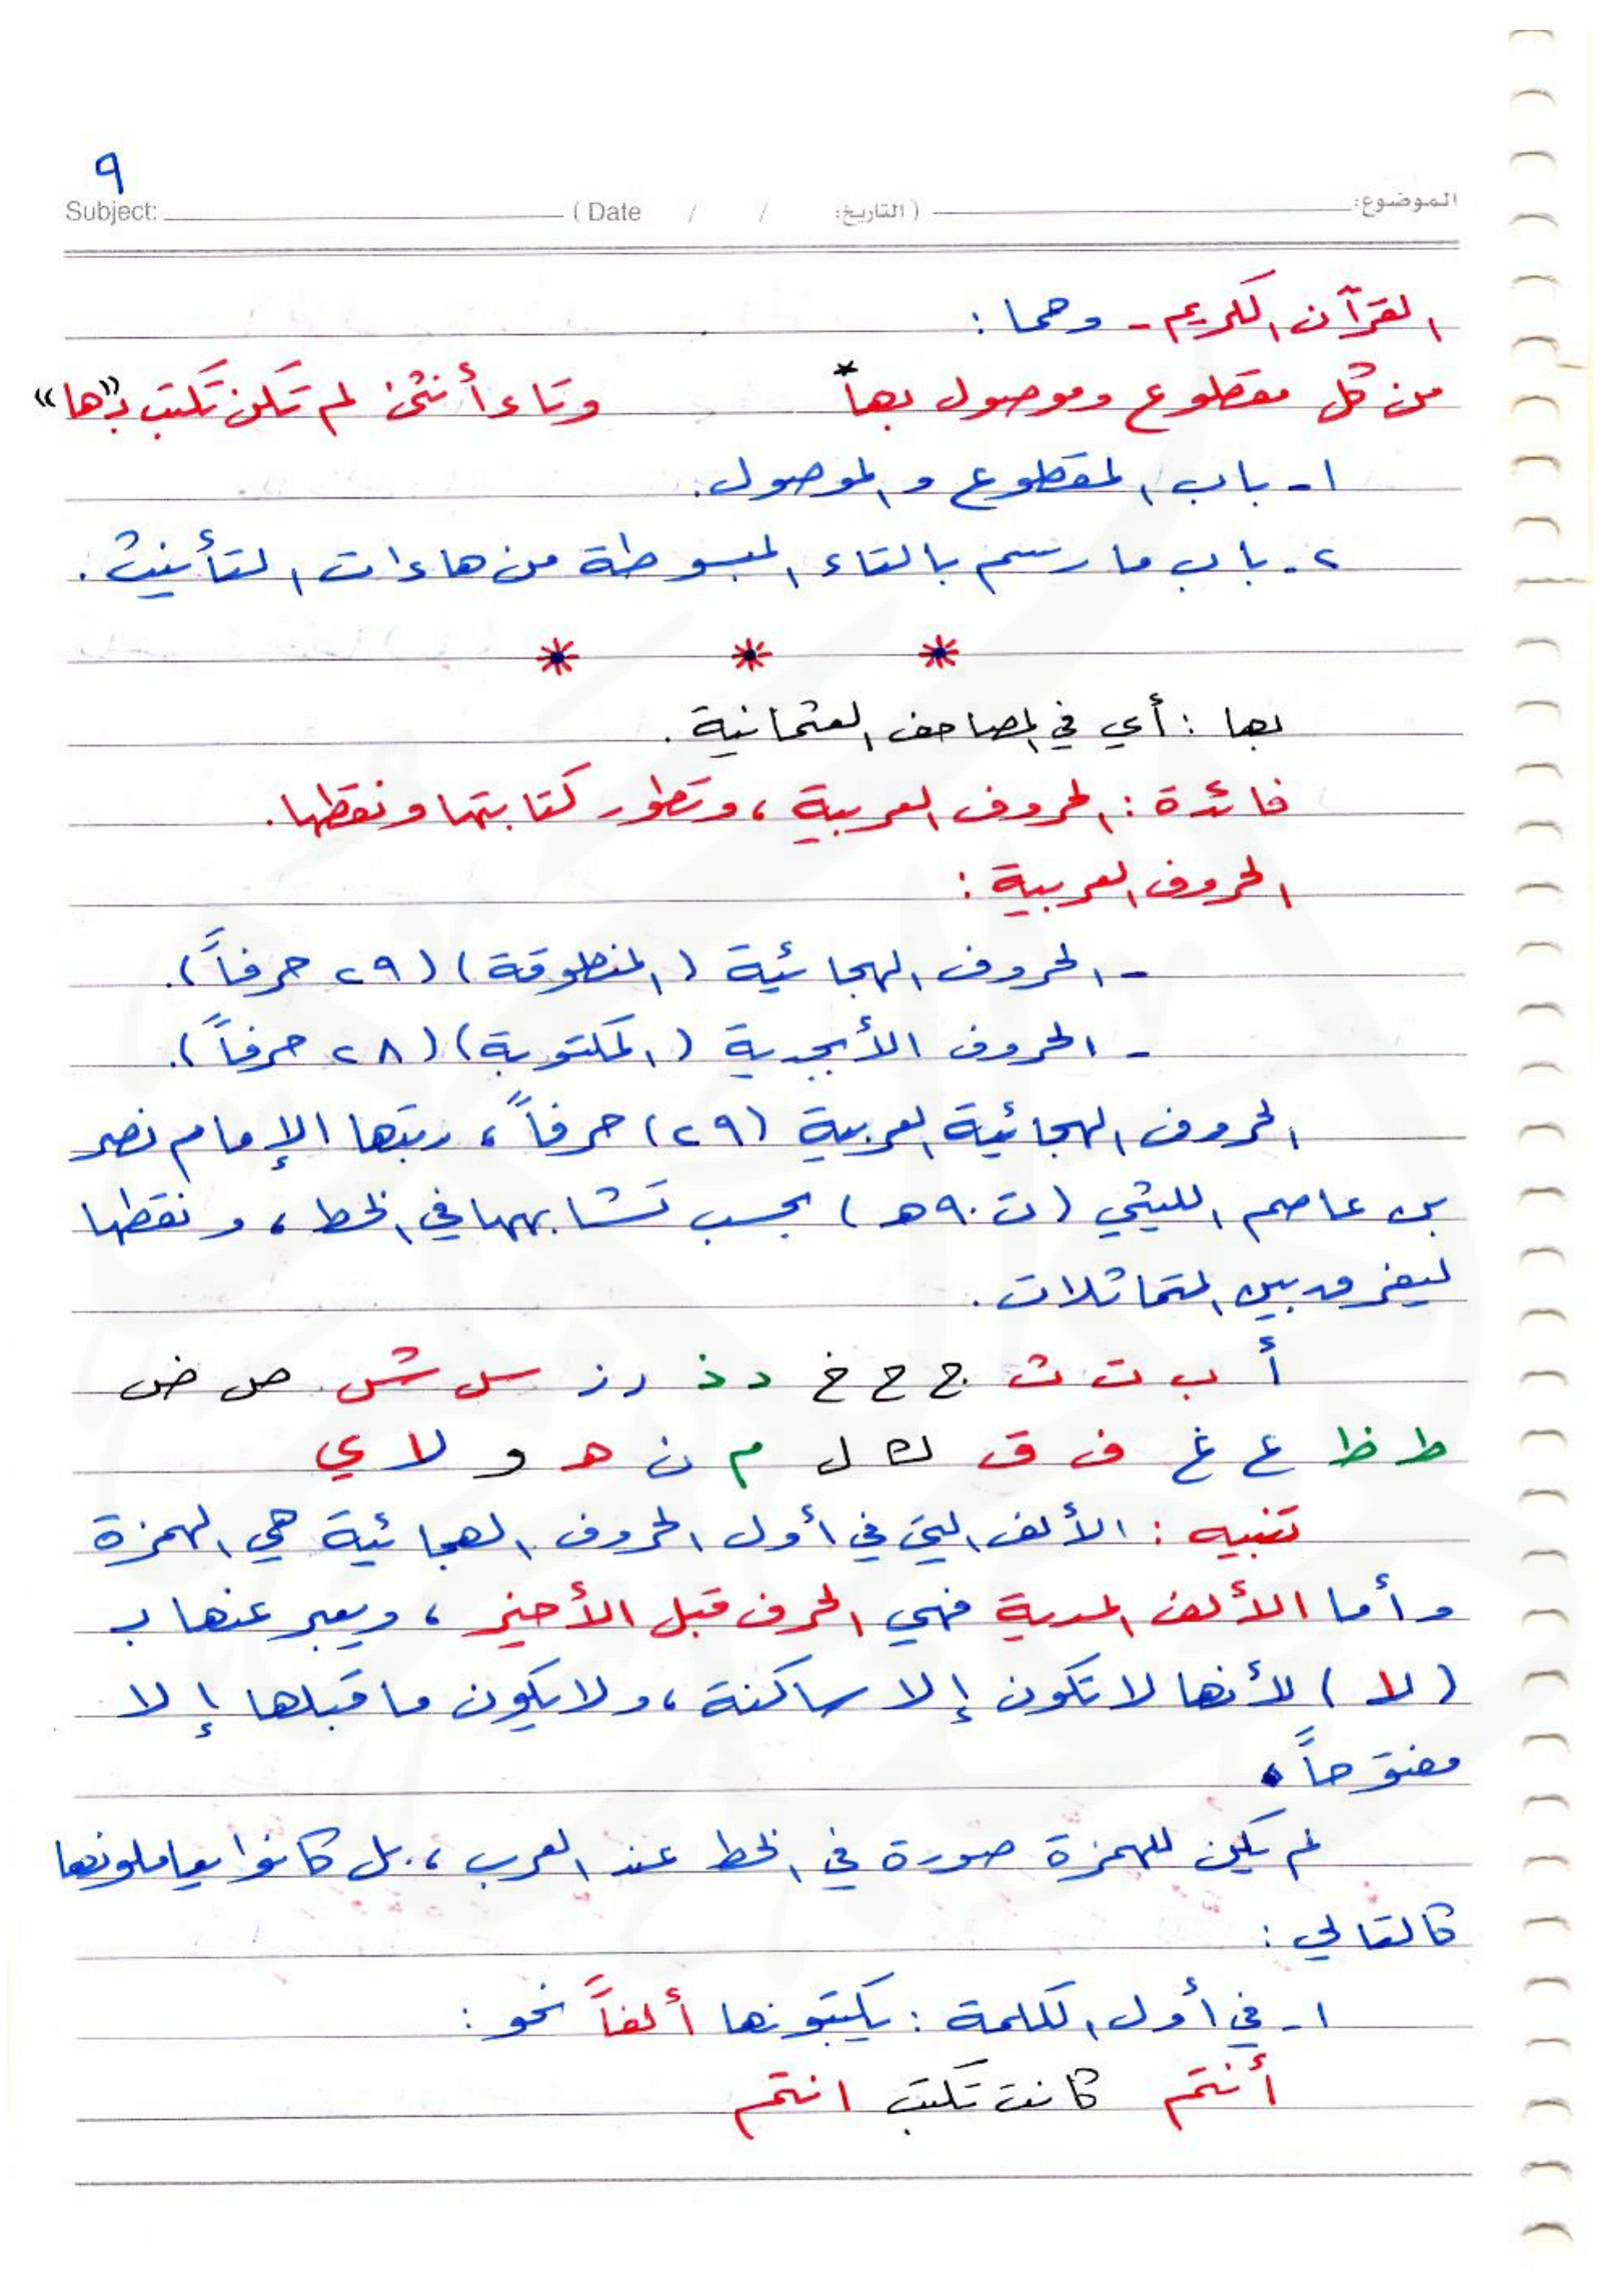 ٩
الموضوع: (التاريخ: / / Date) Subject:
القرآن الكريم - وهما :
من كل مقطوع وموصول بها* وتاء أنثى لم تكن تكتب بـ"ها"
١- باب المقطوع والموصول.
٢- باب ما رسم بالتاء المبسوطة من هاءات التأنيث.
* * *
بها : أي في المصاحف العثمانية .
فائدة : الحروف العربية ، وتطور كتابتها ونقطها.
الحروف العربية :
- الحروف الهجائية (المنطوقة) (٢٩ حرفاً).
- الحروف الأبجدية (المكتوبة) (٢٨ حرفاً).
الحروف الهجائية العربية (٢٩) حرفاً ، رتبها الإمام نصر
بن عاصم الليثي (ت ٩٠هـ) بحسب تشابهها في الخط ، ونقطها
ليفرق بين المتماثلات .
أ ب ت ث ج ح خ د ذ ر ز س ش ص ض
ط ظ ع غ ف ق ك ل م ن هـ و لا ي
تنبيه : الألف التي في أول الحروف الهجائية هي الهمزة
وأما الألف المدية فهي الحرف قبل الأخير ، ويعبر عنها بـ
(لا) لأنها لا تكون إلا ساكنة ، ولا يكون ما قبلها إلا
مفتوحاً .
لم يكن للهمزة صورة في الخط عند العرب ، بل كانوا يعاملونها
كالتالي :
١- في أول الكلمة : يكتبونها ألفاً نحو :
أنتم كانت تكتب انتم